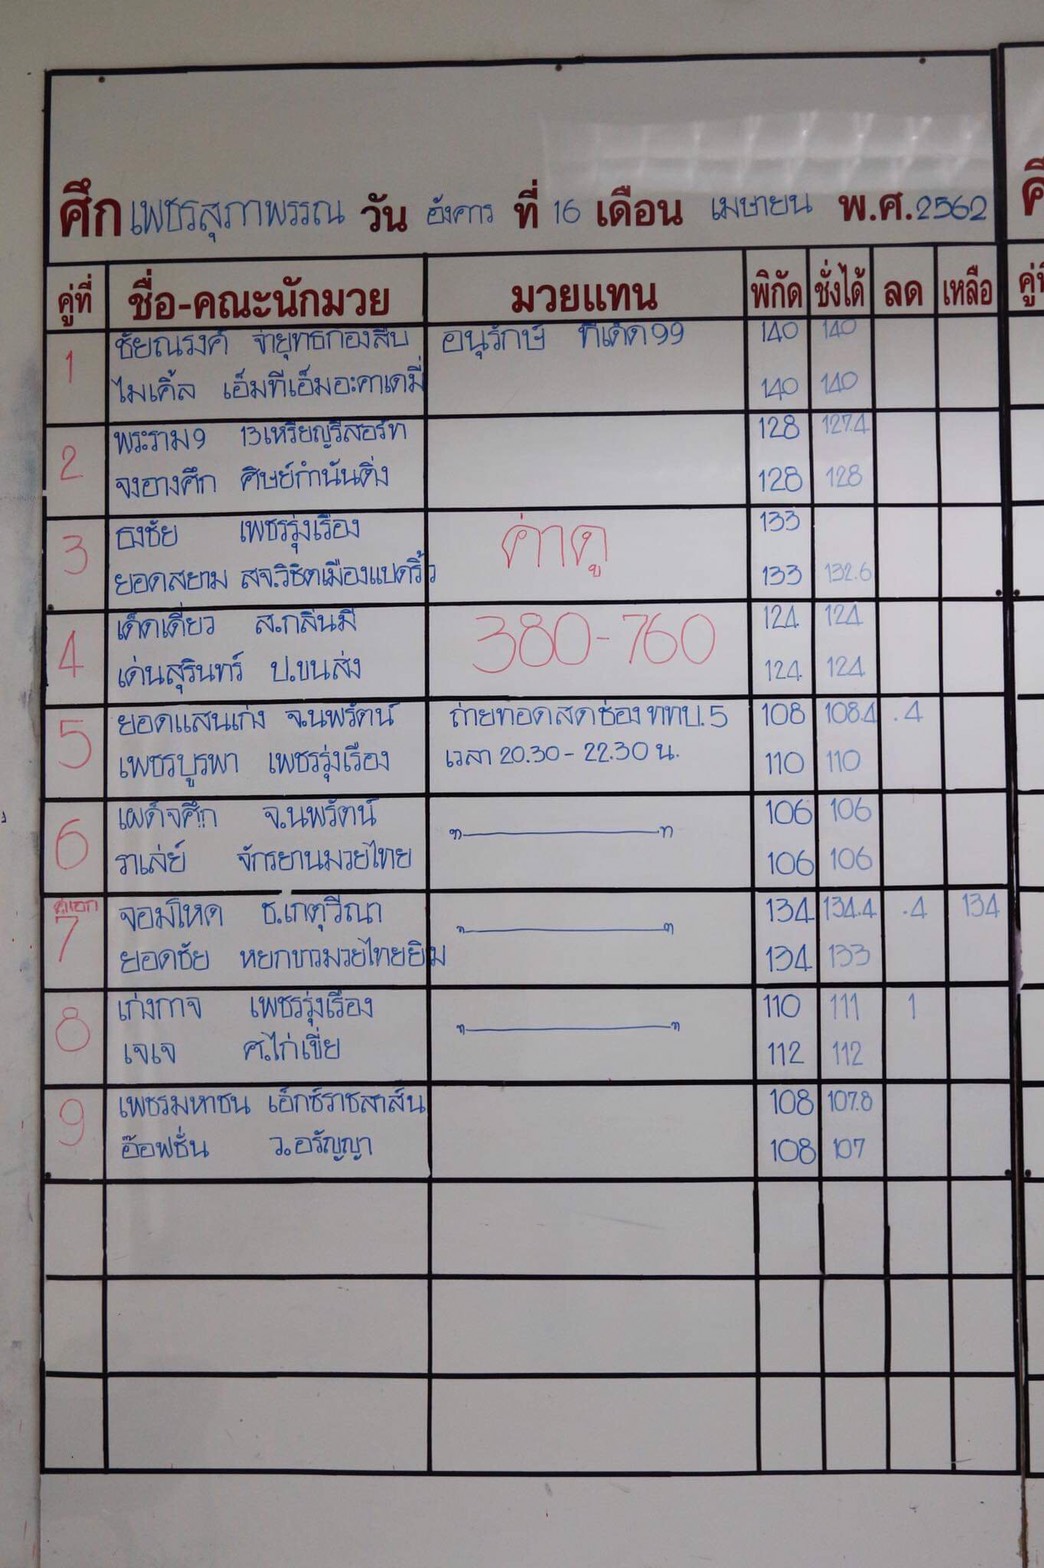 ศึก เพชรสุภาพรรณ วัน อังคาร ที่ 16 เดือน เมษายน พ.ศ. 2562
คู่ที่ ชื่อ-คณะนักมวย มวยแทน พิกัด ชั่งได้ ลด เหลือ คู่ที่
1 ชัยณรงค์ จ่ายุทธกองสิบ อนุรักษ์ ทีเด็ด99 140 140
ไมเคิ้ล เอ็มทีเอ็มอะคาเดมี่ 140 140
2 พระราม9 13เหรียญรีสอร์ท 128 127.4
จงอางศึก ศิษย์กำนันติ่ง 128 128
3 ธงชัย เพชรรุ่งเรือง ค่าดู 133
ยอดสยาม สจ.วิชิตเมืองแปดริ้ว 133 132.6
4 เด็ดเดี่ยว ส.กสินมี 380-760 124 124
เด่นสุรินทร์ ป.ขนส่ง 124 124
5 ยอดแสนเก่ง จ.นพรัตน์ ถ่ายทอดสดช่อง ททบ.5 108 108.4 .4
เพชรบูรพา เพชรรุ่งเรือง เวลา 20.30 - 22.30 น. 110 110
6 เผด็จศึก จ.นพรัตน์ " " 106 106
ราเล่ย์ จักรยานมวยไทย 106 106
คู่เอก
7 จอมโหด ธ.เกตุวีณา " " 134 134.4 .4 134
ยอดชัย หยกขาวมวยไทยยิม 134 133
8 เก่งกาจ เพชรรุ่งเรือง " " 110 111 1
เจเจ ศ.ไก่เขี่ย 112 112
9 เพชรมหาชน เอ็กซ์ราชสาส์น 108 107.8
อ๊อฟชั่น ว.อรัญญา 108 107